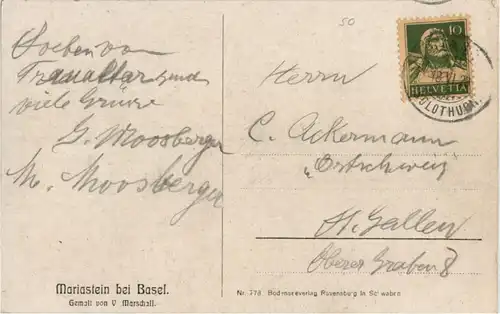 Soeben von
Traualtar sind
viele Grüsse
G. Moosberger
M. Moosberger
Mariastein bei Basel.
Gemalt von V. Marschall.
50
10
HELVETIA
18.VI.2
SOLOTHURN
Herrn
C. Ackermann
"Ostschweiz"
St. Gallen
Oberer Graben 8
Nr. 778 Bodenseeverlag Ravensburg in Schwaben